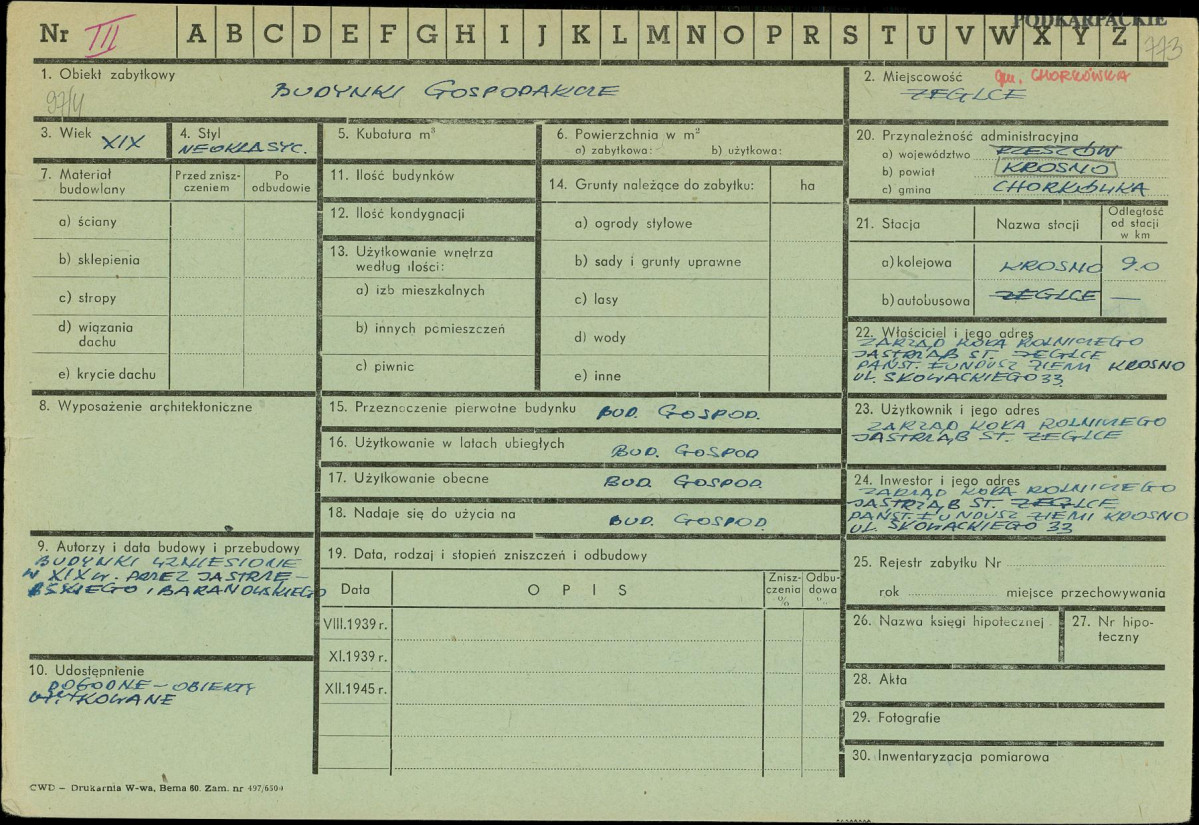 PODKARPACKIE
Nr III A B C D E F G H I J K L M N O P R S T U V W X Y Z 773
1. Obiekt zabytkowy
97/4
BUDYNKI GOSPODARCZE
2. Miejscowość gm. CHORKÓWKA
ŻEGLCE
3. Wiek XIX
4. Styl
NEOKLASYC.
5. Kubatura m³
6. Powierzchnia w m²
a) zabytkowa: b) użytkowa:
7. Materiał budowlany
Przed znisz-
czeniem
Po
odbudowie
a) ściany
b) sklepienia
c) stropy
d) wiązania
dachu
e) krycie dachu
8. Wyposażenie architektoniczne
9. Autorzy i data budowy i przebudowy
BUDYNKI WZNIESIONE
W XIX W. PRZEZ JASTRZĘ-
BSKIEGO I BARANOWSKIEGO
10. Udostępnienie
DOGODNE – OBIEKTY
UŻYTKOWANE
11. Ilość budynków
12. Ilość kondygnacji
13. Użytkowanie wnętrza
według ilości:
a) izb mieszkalnych
b) innych pomieszczeń
c) piwnic
14. Grunty należące do zabytku: ha
a) ogrody stylowe
b) sady i grunty uprawne
c) lasy
d) wody
e) inne
15. Przeznaczenie pierwotne budynku BUD. GOSPOD.
16. Użytkowanie w latach ubiegłych BUD. GOSPOD
17. Użytkowanie obecne BUD. GOSPOD.
18. Nadaje się do użycia na BUD. GOSPOD.
19. Data, rodzaj i stopień zniszczeń i odbudowy
Data OPIS
Znisz-
czenia
%
Odbu-
dowa
%
VIII.1939 r.
XI.1939 r.
XII.1945 r.
20. Przynależność administracyjna
a) województwo RZESZÓW
b) powiat KROSNO
c) gmina CHORKÓWKA
21. Stacja Nazwa stacji
Odległość
od stacji
w km
a) kolejowa KROSNO 9.0
b) autobusowa ŻEGLCE —
22. Właściciel i jego adres
ZARZĄD KOŁA ROLNICZEGO
JASTRZĄB ST. ŻEGLCE
PAŃST. FUNDUSZ ZIEMI KROSNO
UL. SŁOWACKIEGO 33
23. Użytkownik i jego adres
ZARZĄD KOŁA ROLNICZEGO
JASTRZĄB ST. ŻEGLCE
24. Inwestor i jego adres
ZARZĄD KOŁA ROLNICZEGO
JASTRZĄB ST. ŻEGLCE
PAŃST. FUNDUSZ ZIEMI KROSNO
UL. SŁOWACKIEGO 33
25. Rejestr zabytku Nr
rok miejsce przechowywania
26. Nazwa księgi hipotecznej
27. Nr hipo-
teczny
28. Akta
29. Fotografie
30. Inwentaryzacja pomiarowa
CWD – Drukarnia W-wa, Bema 60. Zam. nr 497/650